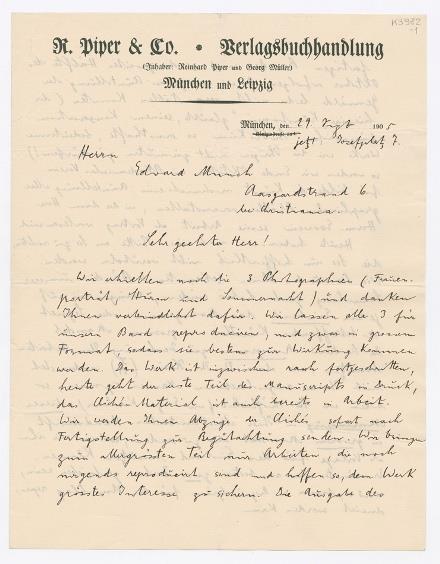 K 3982
-1
R. Piper & Co. • Verlagsbuchhandlung
(Inhaber: Reinhard Piper und Georg Müller)
München und Leipzig
München, den 29. Sept 1905
jetzt Josefplatz 7.
Herrn
Edvard Munch
Aasgardstrand 6
bei Christiania.
Sehr geehrter Herr!
Wir erhielten noch die 3 Photographien (Frauen-
porträt, Sturm und Sommernacht) und danken
Ihnen verbindlichst dafür. Wir lassen alle 3 für
unsern Band reproducieren und zwar in grossem
Format, sodass sie bestens zur Wirkung kommen
werden. Das Werk ist inzwischen rasch fortgeschritten,
heute geht der erste Teil des Manuscripts in Druck,
das Clichés-Material ist auch bereits in Arbeit.
Wir werden Ihnen Abzüge der Clichés sofort nach
Fertigstellung zur Begutachtung senden. Wir bringen
zum allergrössten Teil nur Arbeiten, die noch
nirgends reproduciert sind und hoffen so, dem Werk
grösstes Interesse zu sichern. Die Ausgabe des